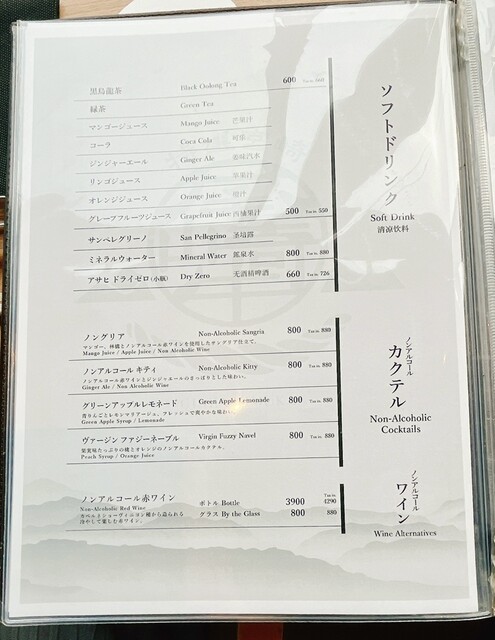 ソフトドリンク
Soft Drink
清凉饮料
黒烏龍茶 Black Oolong Tea 600 Tax in 660
緑茶 Green Tea
マンゴージュース Mango Juice 芒果汁
コーラ Coca Cola 可乐
ジンジャーエール Ginger Ale 姜味汽水
リンゴジュース Apple Juice 苹果汁
オレンジジュース Orange Juice 橙汁
グレープフルーツジュース Grapefruit Juice 西柚果汁 500 Tax in 550
サンペレグリーノ San Pellegrino 圣培露
ミネラルウォーター Mineral Water 鉱泉水 800 Tax in 880
アサヒ ドライゼロ(小瓶) Dry Zero 无酒精啤酒 660 Tax in 726
ノンアルコール
カクテル
Non-Alcoholic
Cocktails
ノングリア Non-Alcoholic Sangria 800 Tax in 880
マンゴー、林檎とノンアルコール赤ワインを使用したサングリア仕立て。
Mango Juice / Apple Juice / Non Alcoholic Wine
ノンアルコール キティ Non-Alcoholic Kitty 800 Tax in 880
ノンアルコール赤ワインとジンジャエールのさっぱりとした味わい。
Ginger Ale / Non Alcoholic Wine
グリーンアップルレモネード Green Apple Lemonade 800 Tax in 880
青りんごとレモンマリアージュ。フレッシュで爽やかな味わい。
Green Apple Syrup / Lemonade
ヴァージン ファジーネーブル Virgin Fuzzy Navel 800 Tax in 880
果実味たっぷりの桃とオレンジのノンアルコールカクテル。
Peach Syrup / Orange Juice
ノンアルコール
ワイン
Wine Alternatives
ノンアルコール赤ワイン ボトル Bottle 3900 Tax in 4290
Non-Alcoholic Red Wine グラス By the Glass 800 880
カベルネショーヴィニヨン種から造られる
冷やして楽しむ赤ワイン。